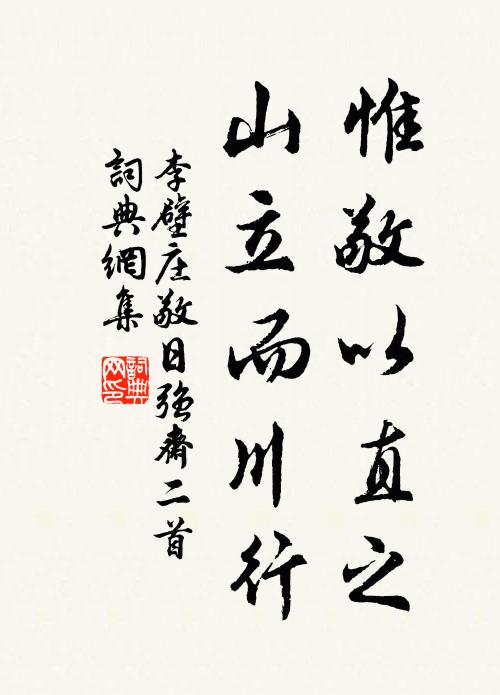 惟敬以直之
山立而川行
李壁庄敬日强齋二首
詞典網集
詞典网印